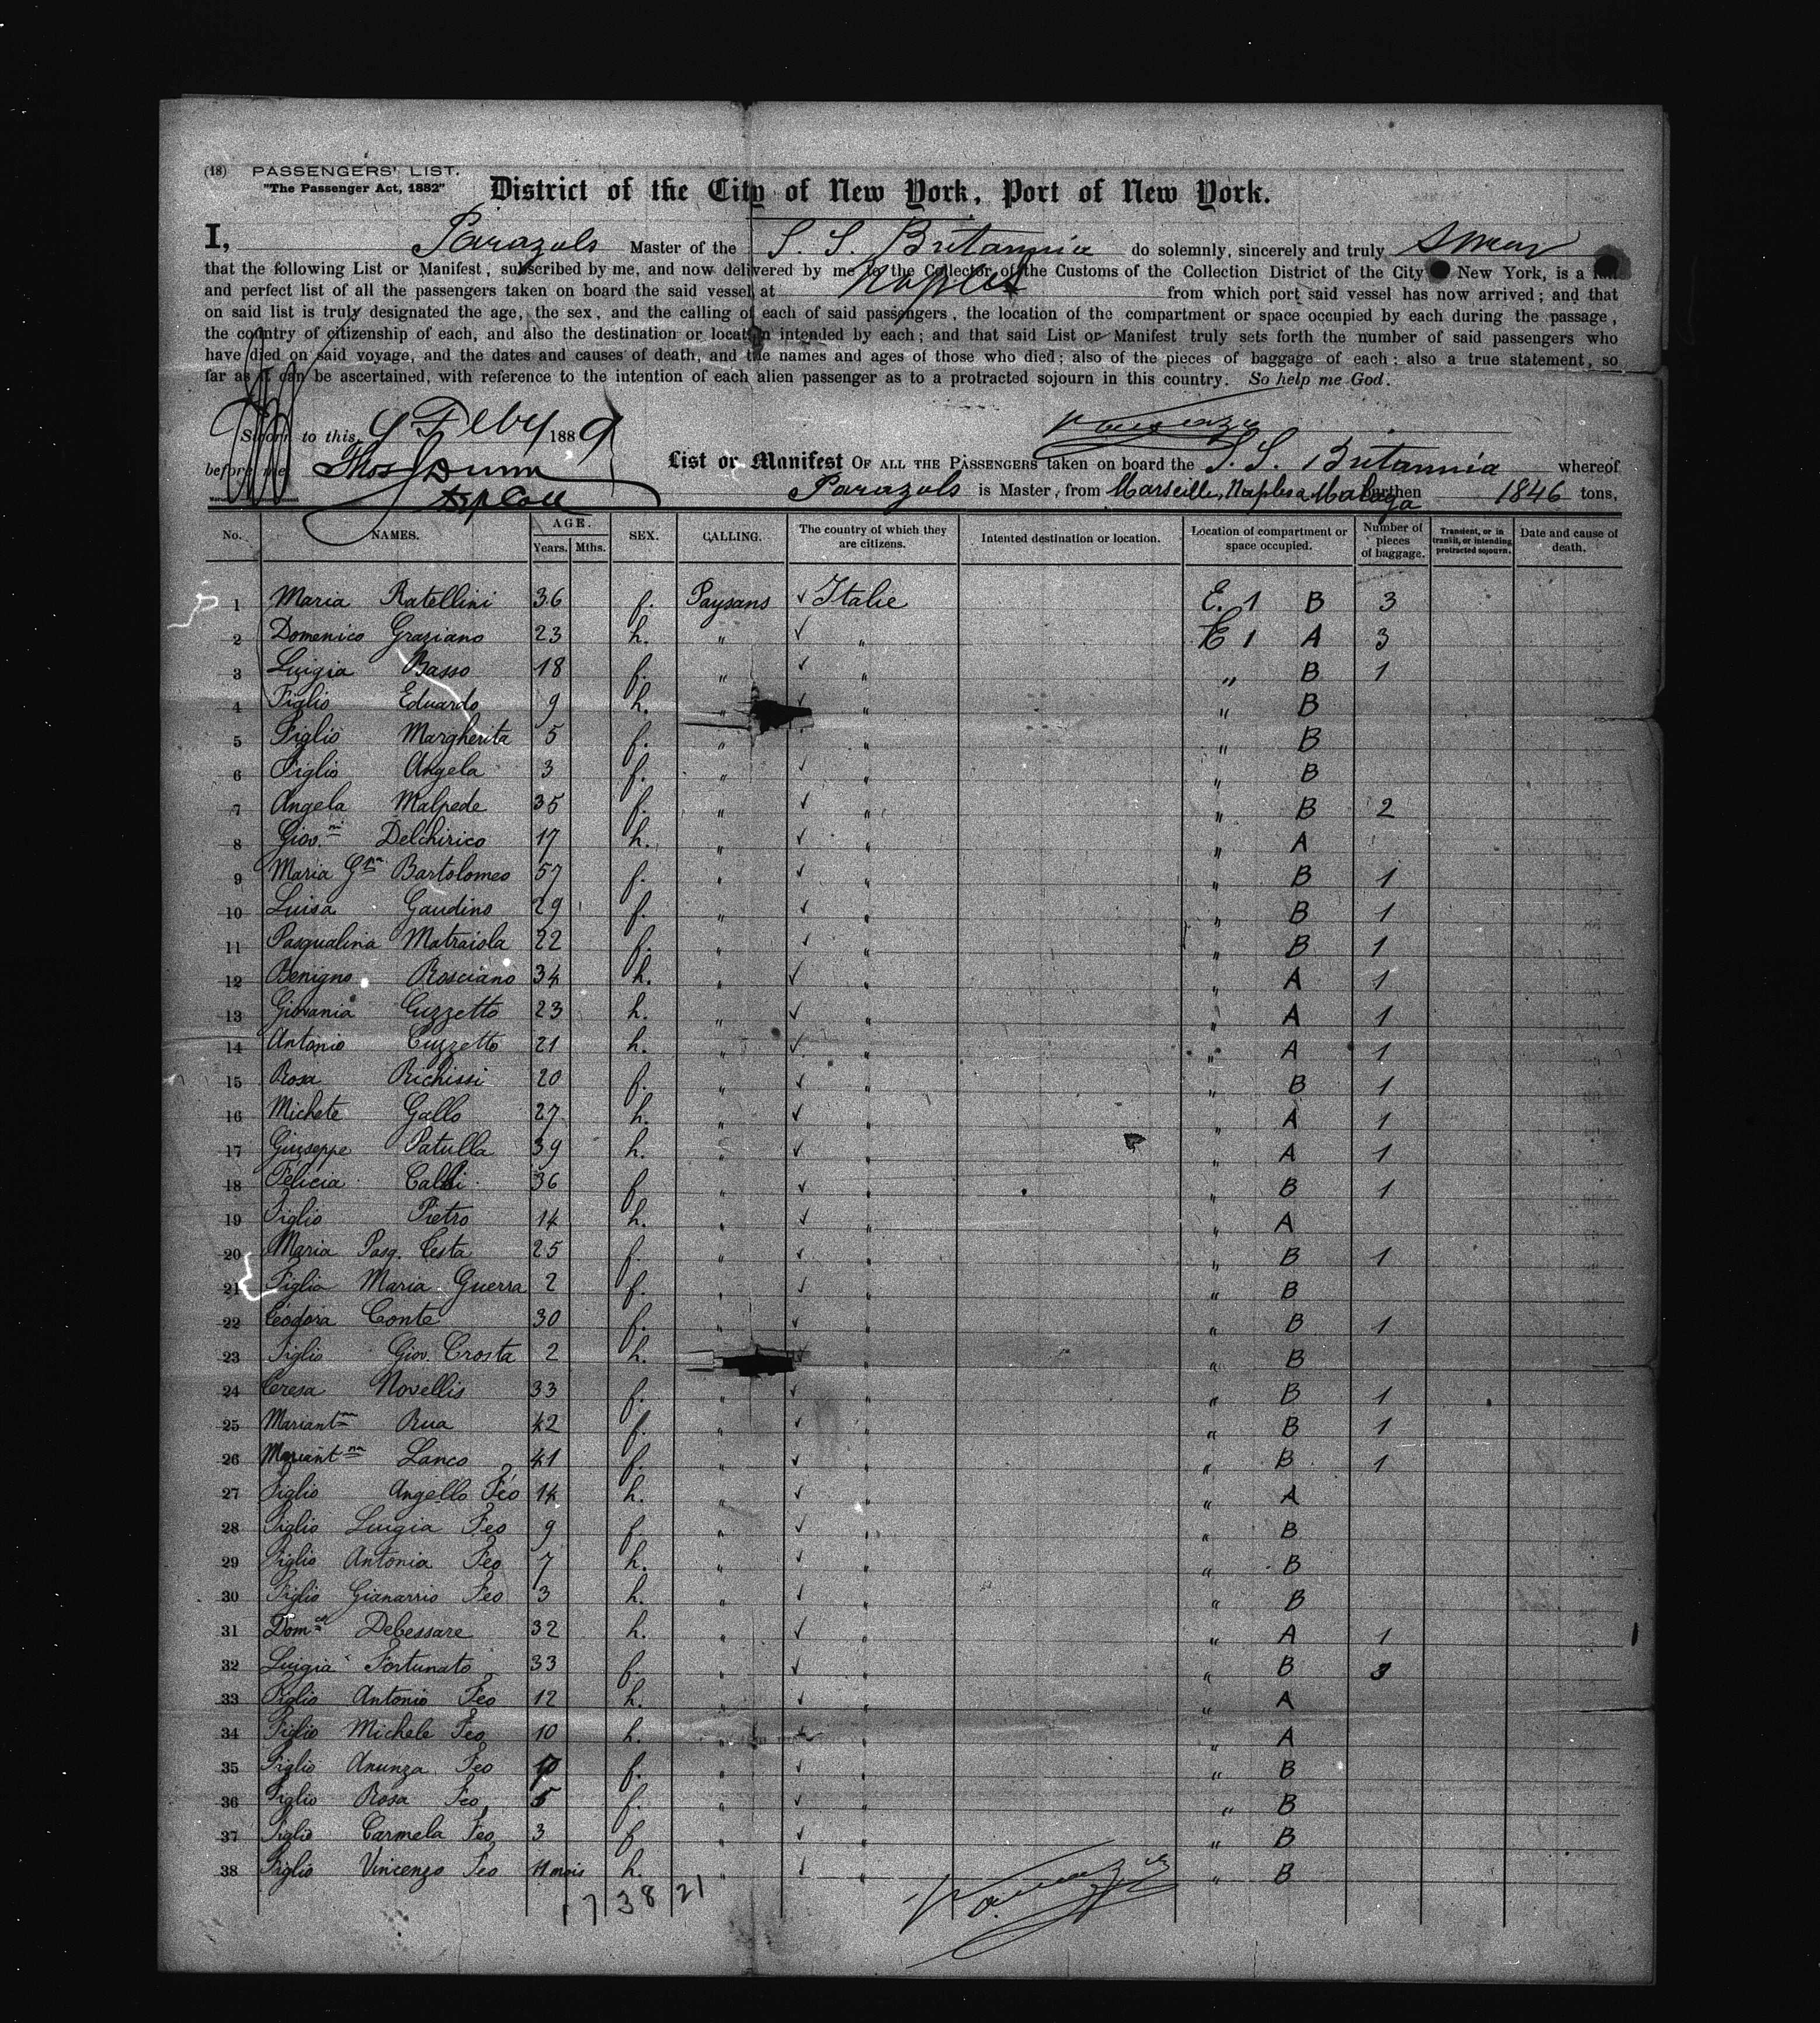 (18) PASSENGERS' LIST.
"The Passenger Act, 1882"
District of the City of New York, Port of New York.
I, Parazols Master of the S. S. Britannia do solemnly, sincerely and truly swear
that the following List or Manifest, subscribed by me, and now delivered by me to the Collector of the Customs of the Collection District of the City New York, is a
and perfect list of all the passengers taken on board the said vessel at Naples from which port said vessel has now arrived; and that
on said list is truly designated the age, the sex, and the calling of each of said passengers, the location of the compartment or space occupied by each during the passage,
the country of citizenship of each, and also the destination or location intended by each; and that said List or Manifest truly sets forth the number of said passengers who
have died on said voyage, and the dates and causes of death, and the names and ages of those who died; also of the pieces of baggage of each; also a true statement, so
far as it can be ascertained, with reference to the intention of each alien passenger as to a protracted sojourn in this country. So help me God.
Sworn to this 4 Feby 1889
before me Thos Dunn
List or Manifest OF ALL THE PASSENGERS taken on board the S. S. Britannia whereof
Parazols is Master, from Marseille, Naples a Malaga burthen 1846 tons,
No. NAMES. AGE. Years. Mths. SEX. CALLING. The country of which they are citizens. Intended destination or location. Location of compartment or space occupied. Number of pieces of baggage. Transient, or in transit, or intending protracted sojourn. Date and cause of death.
1 Maria Ratellini 36 f. Paysans ✓ Italie E. 1 B 3
2 Domenico Graziano 23 h. " ✓ " E 1 A 3
3 Luigia Basso 18 f. " ✓ " " B 1
4 Figlio Eduardo 9 h. " ✓ " " B
5 Figlio Margherita 5 f. " " " B
6 Figlio Angela 3 f. " ✓ " " B
7 Angela Malpede 35 f. " ✓ " " B 2
8 Giov.ni Delchirico 17 h. " ✓ " " A
9 Maria Gna Bartolomeo 57 f. " ✓ " " B 1
10 Luisa Gaudino 29 f. " ✓ " " B 1
11 Pasqualina Matraiola 22 f. " ✓ " " B 1
12 Benigno Rosciano 34 h. " ✓ " " A 1
13 Giovania Cuzzetto 23 h. " ✓ " " A 1
14 Antonio Cuzzetto 21 h. " ✓ " " A 1
15 Rosa Richissi 20 f. " ✓ " " B 1
16 Michele Gallo 27 h. " ✓ " " A 1
17 Giuseppe Patulla 39 h. " ✓ " " A 1
18 Felicia Calbi 36 f. " ✓ " " B 1
19 Figlio Pietro 14 h. " ✓ " " A
20 Maria Pasq. Cesta 25 f. " ✓ " " B 1
21 Figlia Maria Guerra 2 f. " ✓ " " B
22 Teodora Conte 30 f. " ✓ " " B 1
23 Figlio Giov. Crosta 2 h. ✓ " " B
24 Teresa Novellis 33 f. " ✓ " " B 1
25 Mariantna Rua 42 f. " ✓ " " B 1
26 Mariantna Lanco 41 f. " ✓ " " B 1
27 Figlio Angello Feo 14 h. " ✓ " " A
28 Figlio Luigia Feo 9 f. " ✓ " " B
29 Figlio Antonia Feo 7 h. " ✓ " " B
30 Figlio Gianarrio Feo 3 h. " ✓ " " B
31 Domco Debessare 32 h. " ✓ " " A 1
32 Luigia Fortunato 33 f. " ✓ " " B 3
33 Figlio Antonio Feo 12 h. " ✓ " " A
34 Figlio Michele Feo 10 h. " " " A
35 Figlio Anunza Feo f. " ✓ " " B
36 Figlio Rosa Feo 5 f. " ✓ " " B
37 Figlio Carmela Feo 3 f. " ✓ " " B
38 Figlio Vincenzo Feo 11 mois h. " ✓ " " B
17 38 21